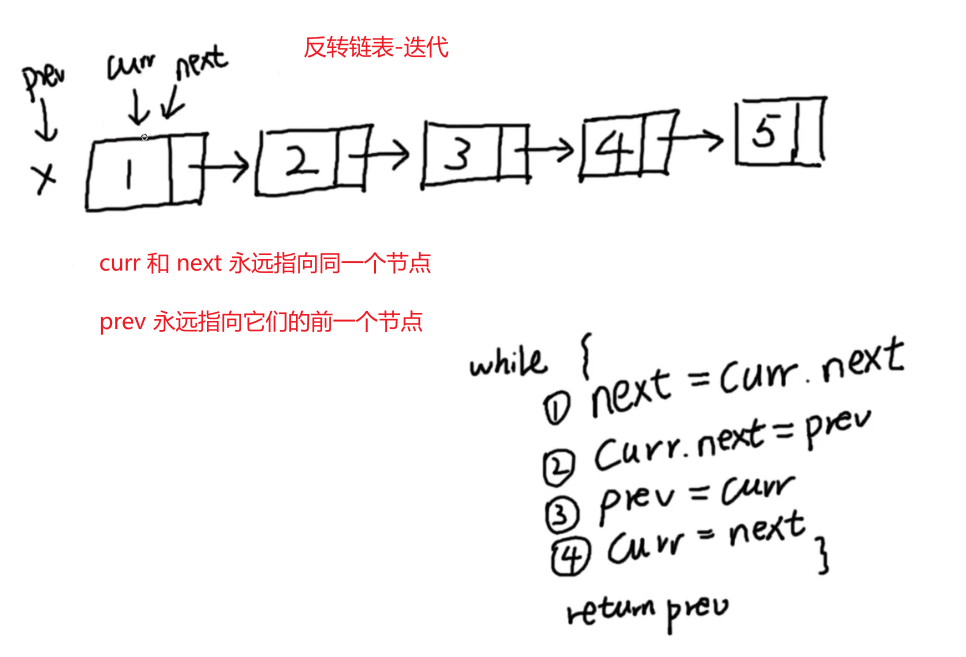 反转链表-迭代
prev curr next
X 1 2 3 4 5
curr 和 next 永远指向同一个节点
prev 永远指向它们的前一个节点
while {
① next = curr.next
② Curr.next = prev
③ prev = curr
④ Curr = next }
return prev